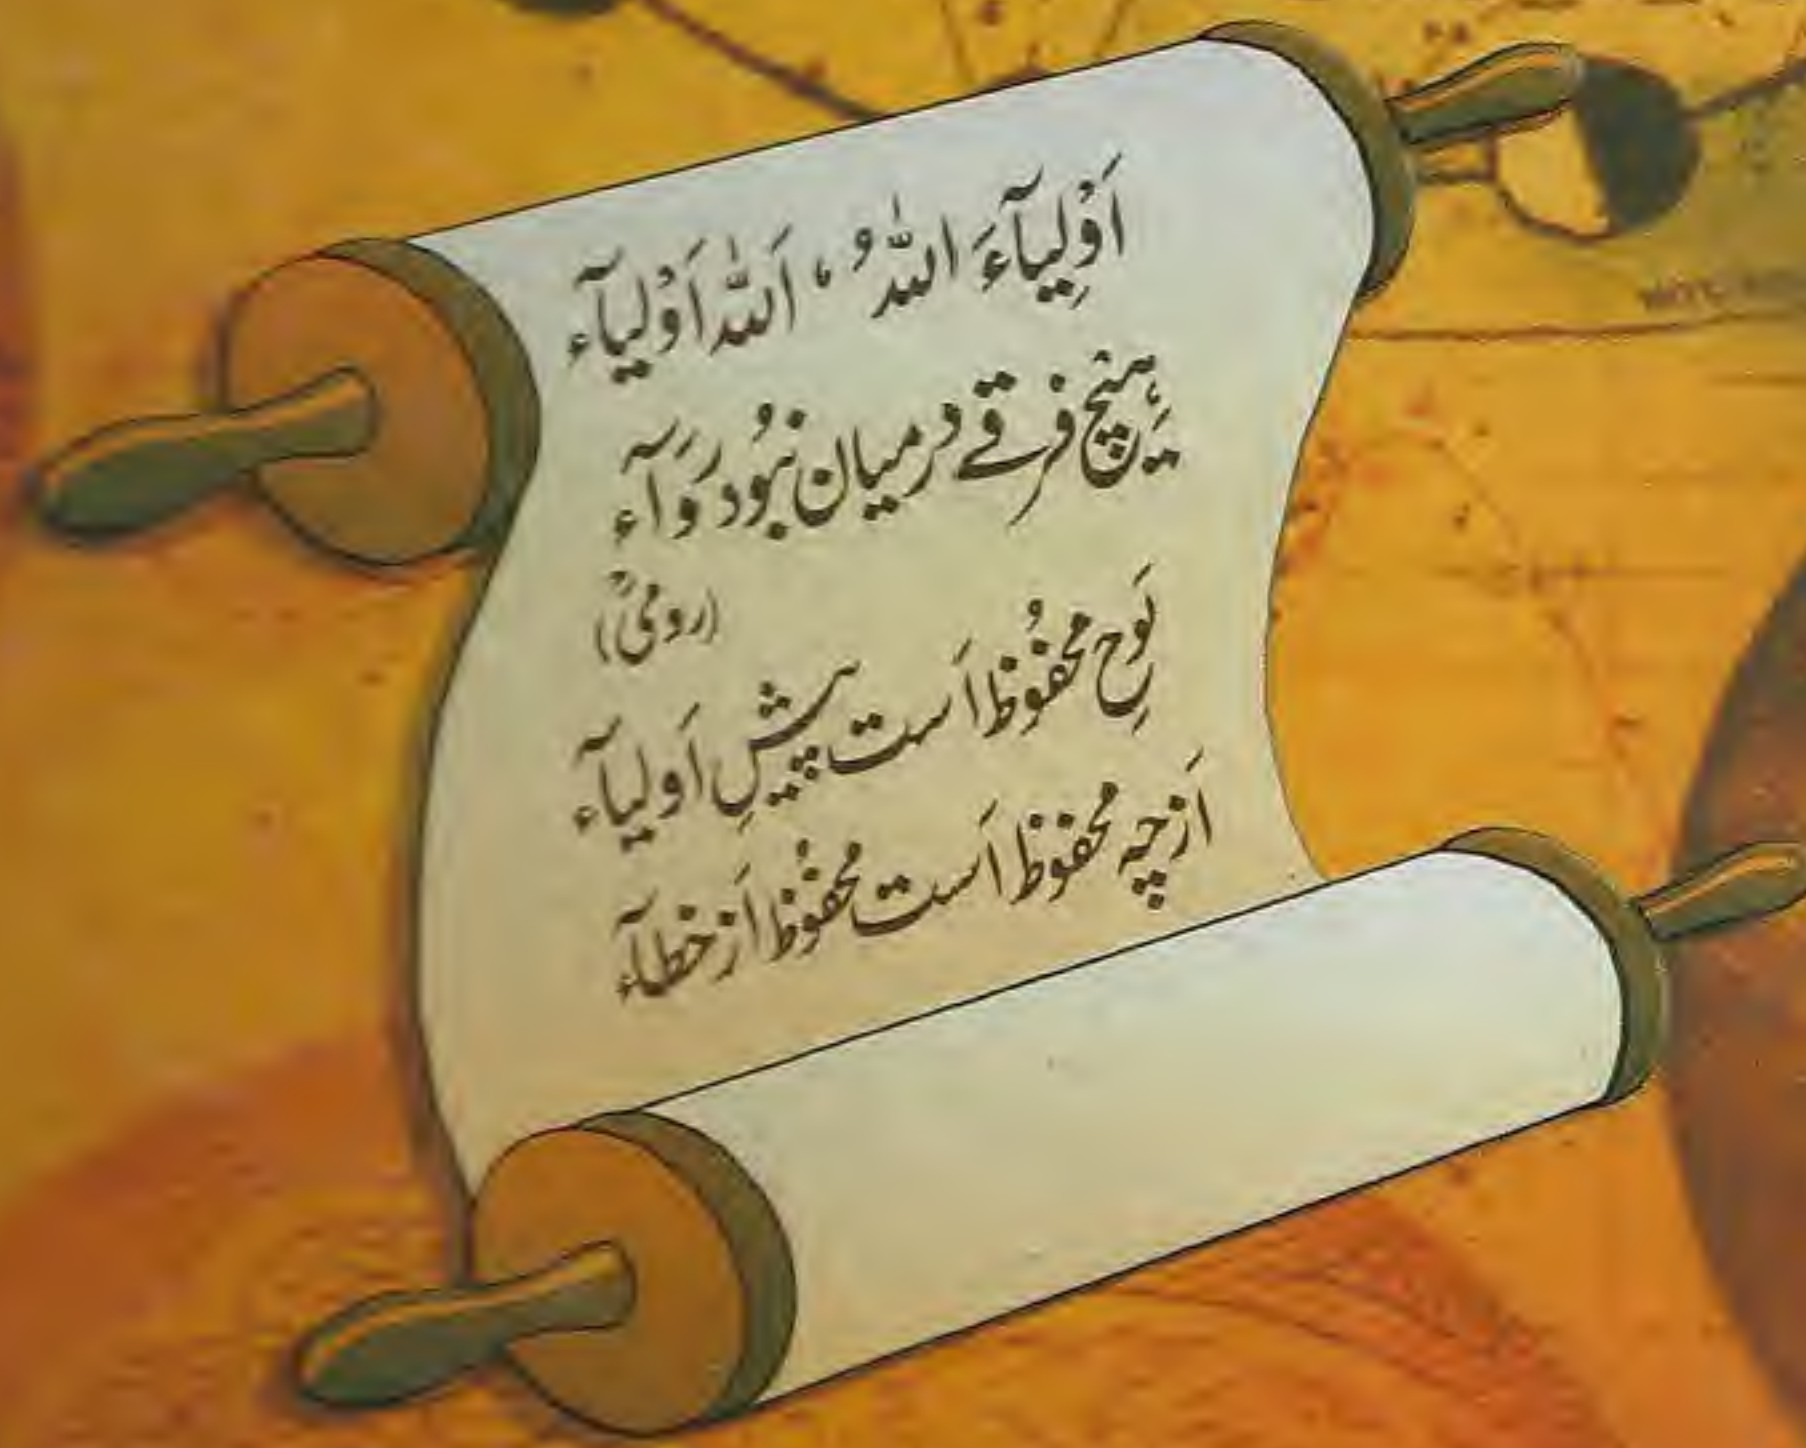 اَوْلِیآءَ اللّٰہُ ، اَللّٰہ اَوْلیآء
ہیچ فرقے درمیان نبُود رَوَآء
(رومیؒ)
لَوحِ محفُوظ اَست پیشِ اَولیآء
اَزچہ محفوظ اَست محفُوظ اَز خطآء